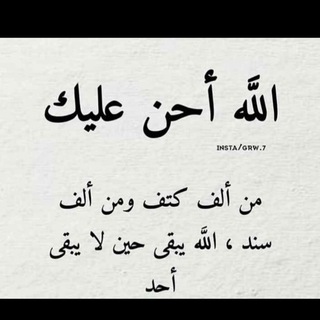 اللَّه أحن عليك
INSTA/GRW.7
من ألف كتف ومن ألف
سند ، اللَّه يبقى حين لا يبقى
أحد